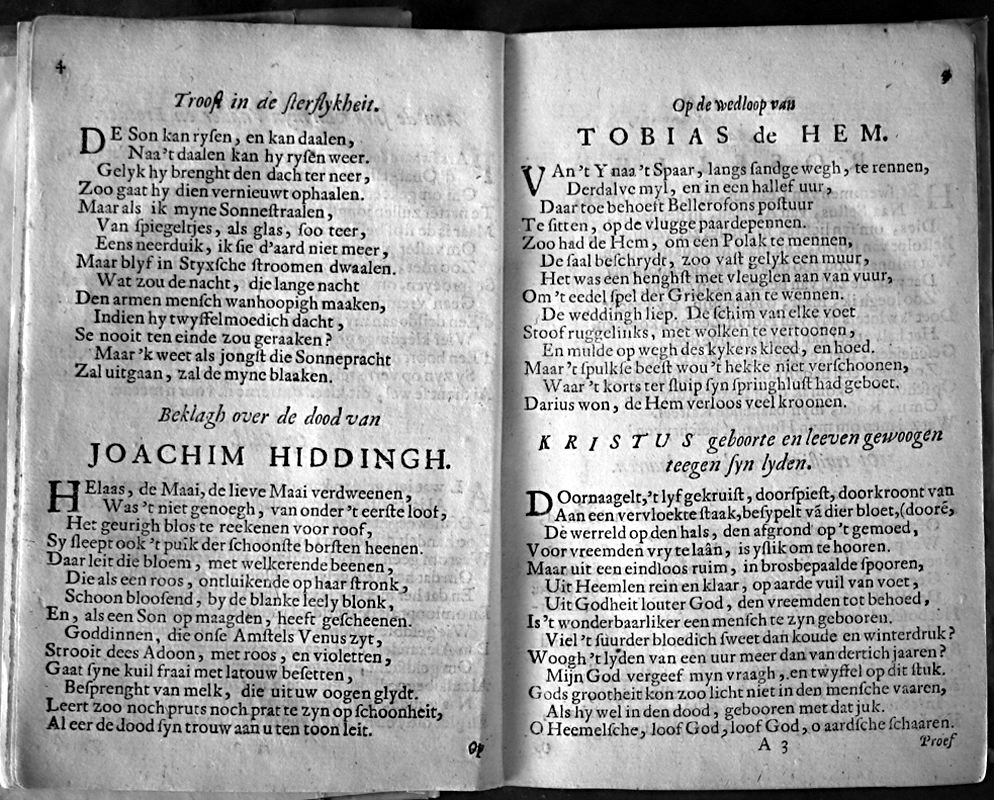 4
Troost in de sterflykheit.
DE Son kan rysen, en kan daalen,
Naa't daalen kan hy rysen weer.
Gelyk hy brenght den dach ter neer,
Zoo gaat hy dien vernieuwt ophaalen.
Maar als ik myne Sonnestraalen,
Van spiegeltjes, als glas, soo teer,
Eens neerduik, ik sie d'aard niet meer,
Maar blyf in Styxsche stroomen dwaalen.
Wat zou de nacht, die lange nacht
Den armen mensch wanhoopigh maaken,
Indien hy twyffelmoedich dacht,
Se nooit ten einde zou geraaken?
Maar 'k weet als jongst die Sonnepracht
Zal uitgaan, zal de myne blaaken.
Beklagh over de dood van
JOACHIM HIDDINGH.
HElaas, de Maai, de lieve Maai verdweenen,
Was 't niet genoegh, van onder 't eerste loof,
Het geurigh blos te reekenen voor roof,
Sy sleept ook 't puik der schoonste borsten heenen.
Daar leit die bloem, met welkerende beenen,
Die als een roos, ontluikende op haar stronk,
Schoon bloosend, by de blanke leely blonk,
En, als een Son op maagden, heeft gescheenen.
Goddinnen, die onse Amstels Venus zyt,
Strooit dees Adoon, met roos, en violetten,
Gaat syne kuil fraai met latouw besetten,
Besprenght van melk, die uit uw oogen glydt.
Leert zoo noch pruts noch prat te zyn op schoonheit,
Al eer de dood syn trouw aan u ten toon leit.
Op
Op de wedloop van
TOBIAS de HEM.
VAn 't Y naa 't Spaar, langs sandge wegh, te rennen,
Derdalve myl, en in een hallef uur,
Daar toe behoeft Bellerofons postuur
Te sitten, op de vlugge paardepennen.
Zoo had de Hem, om een Polak te mennen,
De saal beschrydt, zoo vast gelyk een muur,
Het was een henghst met vleuglen aan van vuur,
Om 't eedel spel der Grieken aan te wennen.
De weddingh liep. De schim van elke voet
Stoof ruggelinks, met wolken te vertoonen,
En mulde op wegh des kykers kleed, en hoed.
Maar 't spulkse beest wou 't hekke niet verschoonen,
Waar 't korts ter sluip syn springhlust had geboet.
Darius won, de Hem verloos veel kroonen.
KRISTUS geboorte en leeven gewoogen
teegen syn lyden.
DOornaagelt, 't lyf gekruist, doorspiest, doorkroont van
Aan een vervloekte staak, besypelt vā dier bloet, (doorē,
De werreld op den hals, den afgrond op 't gemoed,
Voor vreemden vry te laân, is yslik om te hooren.
Maar uit een eindloos ruim, in brosbepaalde spooren,
Uit Heemlen rein en klaar, op aarde vuil van voet,
Uit Godheit louter God, den vreemden tot behoed,
Is 't wonderbaarliker een mensch te zyn gebooren.
Viel 't suurder bloedich sweet dan koude en winterdruk?
Woogh 't lyden van een uur meer dan van dertich jaaren?
Mijn God vergeef myn vraagh, en twyffel op dit stuk.
Gods grootheit kon zoo licht niet in den mensche vaaren,
Als hy wel in den dood, gebooren met dat juk.
O Heemelsche, loof God, loof God, o aardsche schaaren.
A 3
Proef